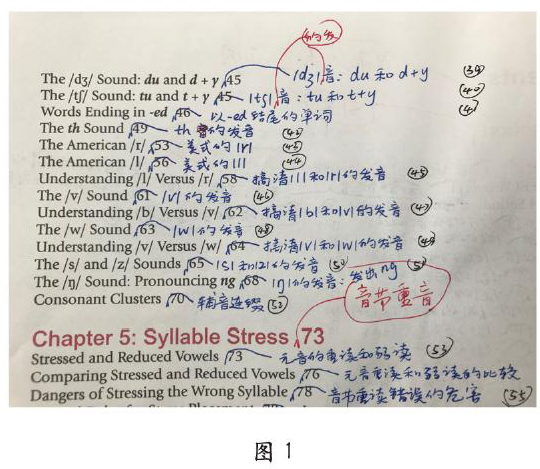 的发
The /dʒ/ Sound: du and d + y 45 /dʒ/音: du 和 d+y (39)
The /tʃ/ Sound: tu and t + y 45 /tʃ/音: tu 和 t+y (40)
Words Ending in -ed 46 以-ed 结尾的单词
The th Sound 49 th 的发音 (42)
The American /r/ 53 美式的 /r/ (43)
The American /l/ 56 美式的 /l/ (44)
Understanding /l/ Versus /r/ 58 搞清/l/和/r/的发音 (45)
The /v/ Sound 61 /v/的发音 (46)
Understanding /b/ Versus /v/ 62 搞清/b/和/v/的发音 (47)
The /w/ Sound 63 /w/的发音 (48)
Understanding /v/ Versus /w/ 64 搞清/v/和/w/的发音 (49)
The /s/ and /z/ Sounds 65 /s/和/z/的发音 (50)
The /ŋ/ Sound: Pronouncing ng 68 /ŋ/的发音: 发出ng (51)
Consonant Clusters 70 辅音连缀 (52)
音节重音
Chapter 5: Syllable Stress 73
Stressed and Reduced Vowels 73 元音的重读和弱读 (53)
Comparing Stressed and Reduced Vowels 76 元音重读和弱读的比较
Dangers of Stressing the Wrong Syllable 78 音节重读错误的危害 (55)
图 1